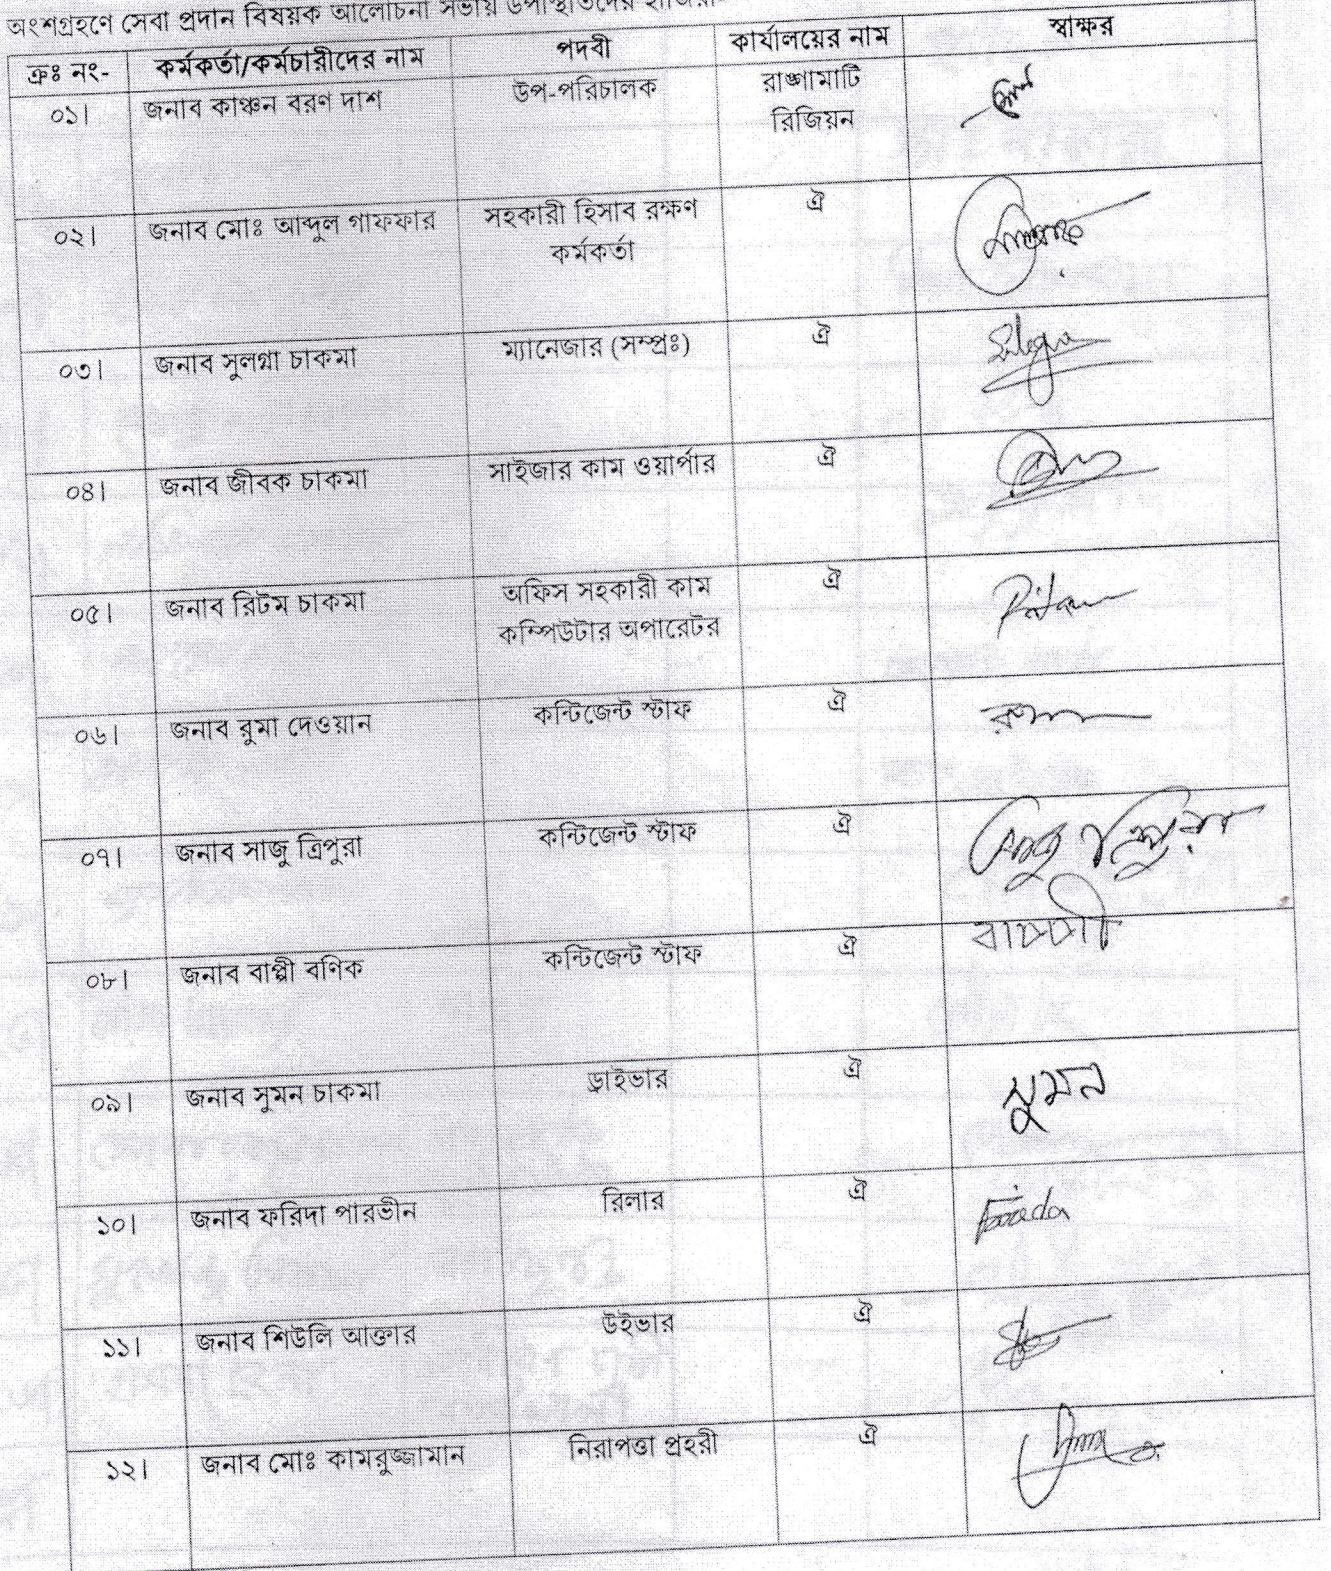 অংশগ্রহণে সেবা প্রদান বিষয়ক আলোচনা সভায় উপস্থিতদের
ক্রঃ নং- কর্মকর্তা/কর্মচারীদের নাম পদবী কার্যালয়ের নাম স্বাক্ষর
০১। জনাব কাঞ্চন বরণ দাশ উপ-পরিচালক রাঙ্গামাটি
রিজিয়ন
০২। জনাব মোঃ আব্দুল গাফফার সহকারী হিসাব রক্ষণ ঐ
কর্মকর্তা
০৩। জনাব সুলগ্না চাকমা ম্যানেজার (সম্প্রঃ) ঐ
০৪। জনাব জীবক চাকমা সাইজার কাম ওয়ার্পার ঐ
০৫। জনাব রিটম চাকমা অফিস সহকারী কাম ঐ
কম্পিউটার অপারেটর
০৬। জনাব রুমা দেওয়ান কন্টিজেন্ট স্টাফ ঐ
০৭। জনাব সাজু ত্রিপুরা কন্টিজেন্ট স্টাফ ঐ সাজু ত্রিপুরা
০৮। জনাব বাপ্পী বণিক কন্টিজেন্ট স্টাফ ঐ
০৯। জনাব সুমন চাকমা ড্রাইভার ঐ সুমন
১০। জনাব ফরিদা পারভীন রিলার ঐ Farida
১১। জনাব শিউলি আক্তার উইভার ঐ
১২। জনাব মোঃ কামরুজ্জামান নিরাপত্তা প্রহরী ঐ